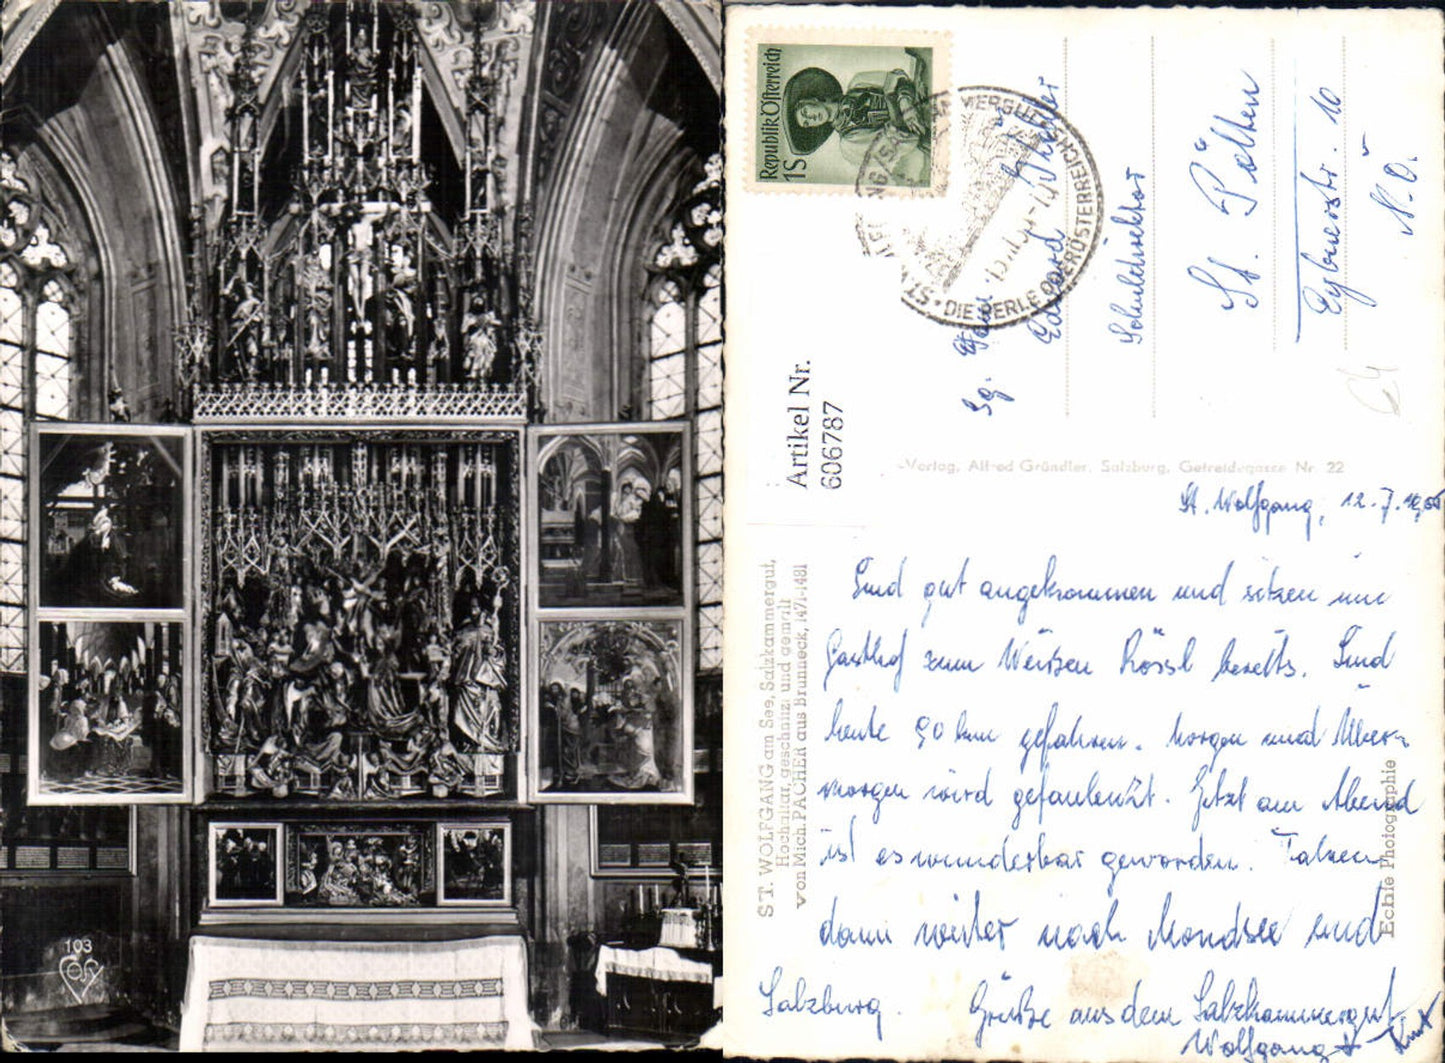 103
Republik Österreich
1 S
DIE PERLE OBERÖSTERREICHS
Artikel Nr.
606787
Sg. Fam.
Eduard
Schuldirektor
St. Pölten
Eybnerstr. 10
N.Ö.
Verlag, Alfred Gründler, Salzburg, Getreidegasse Nr. 22
ST. WOLFGANG am See, Salzkammergut,
Hochaltar, geschnitzt und gemalt
von Mich. PACHER aus Brunneck, 1471-1481
Echte Photographie
St. Wolfgang, 12.7.
Sind gut angekommen und sitzen im
Gasthof zum Weißen Rössl bereits. Sind
heute 90 km gefahren. Morgen und Über-
morgen wird gefaulenzt. Jetzt am Abend
ist es wunderbar geworden. Fahren
dann weiter nach Mondsee und
Salzburg. Grüße aus dem Salzkammergut
Wolfgang + Kurt